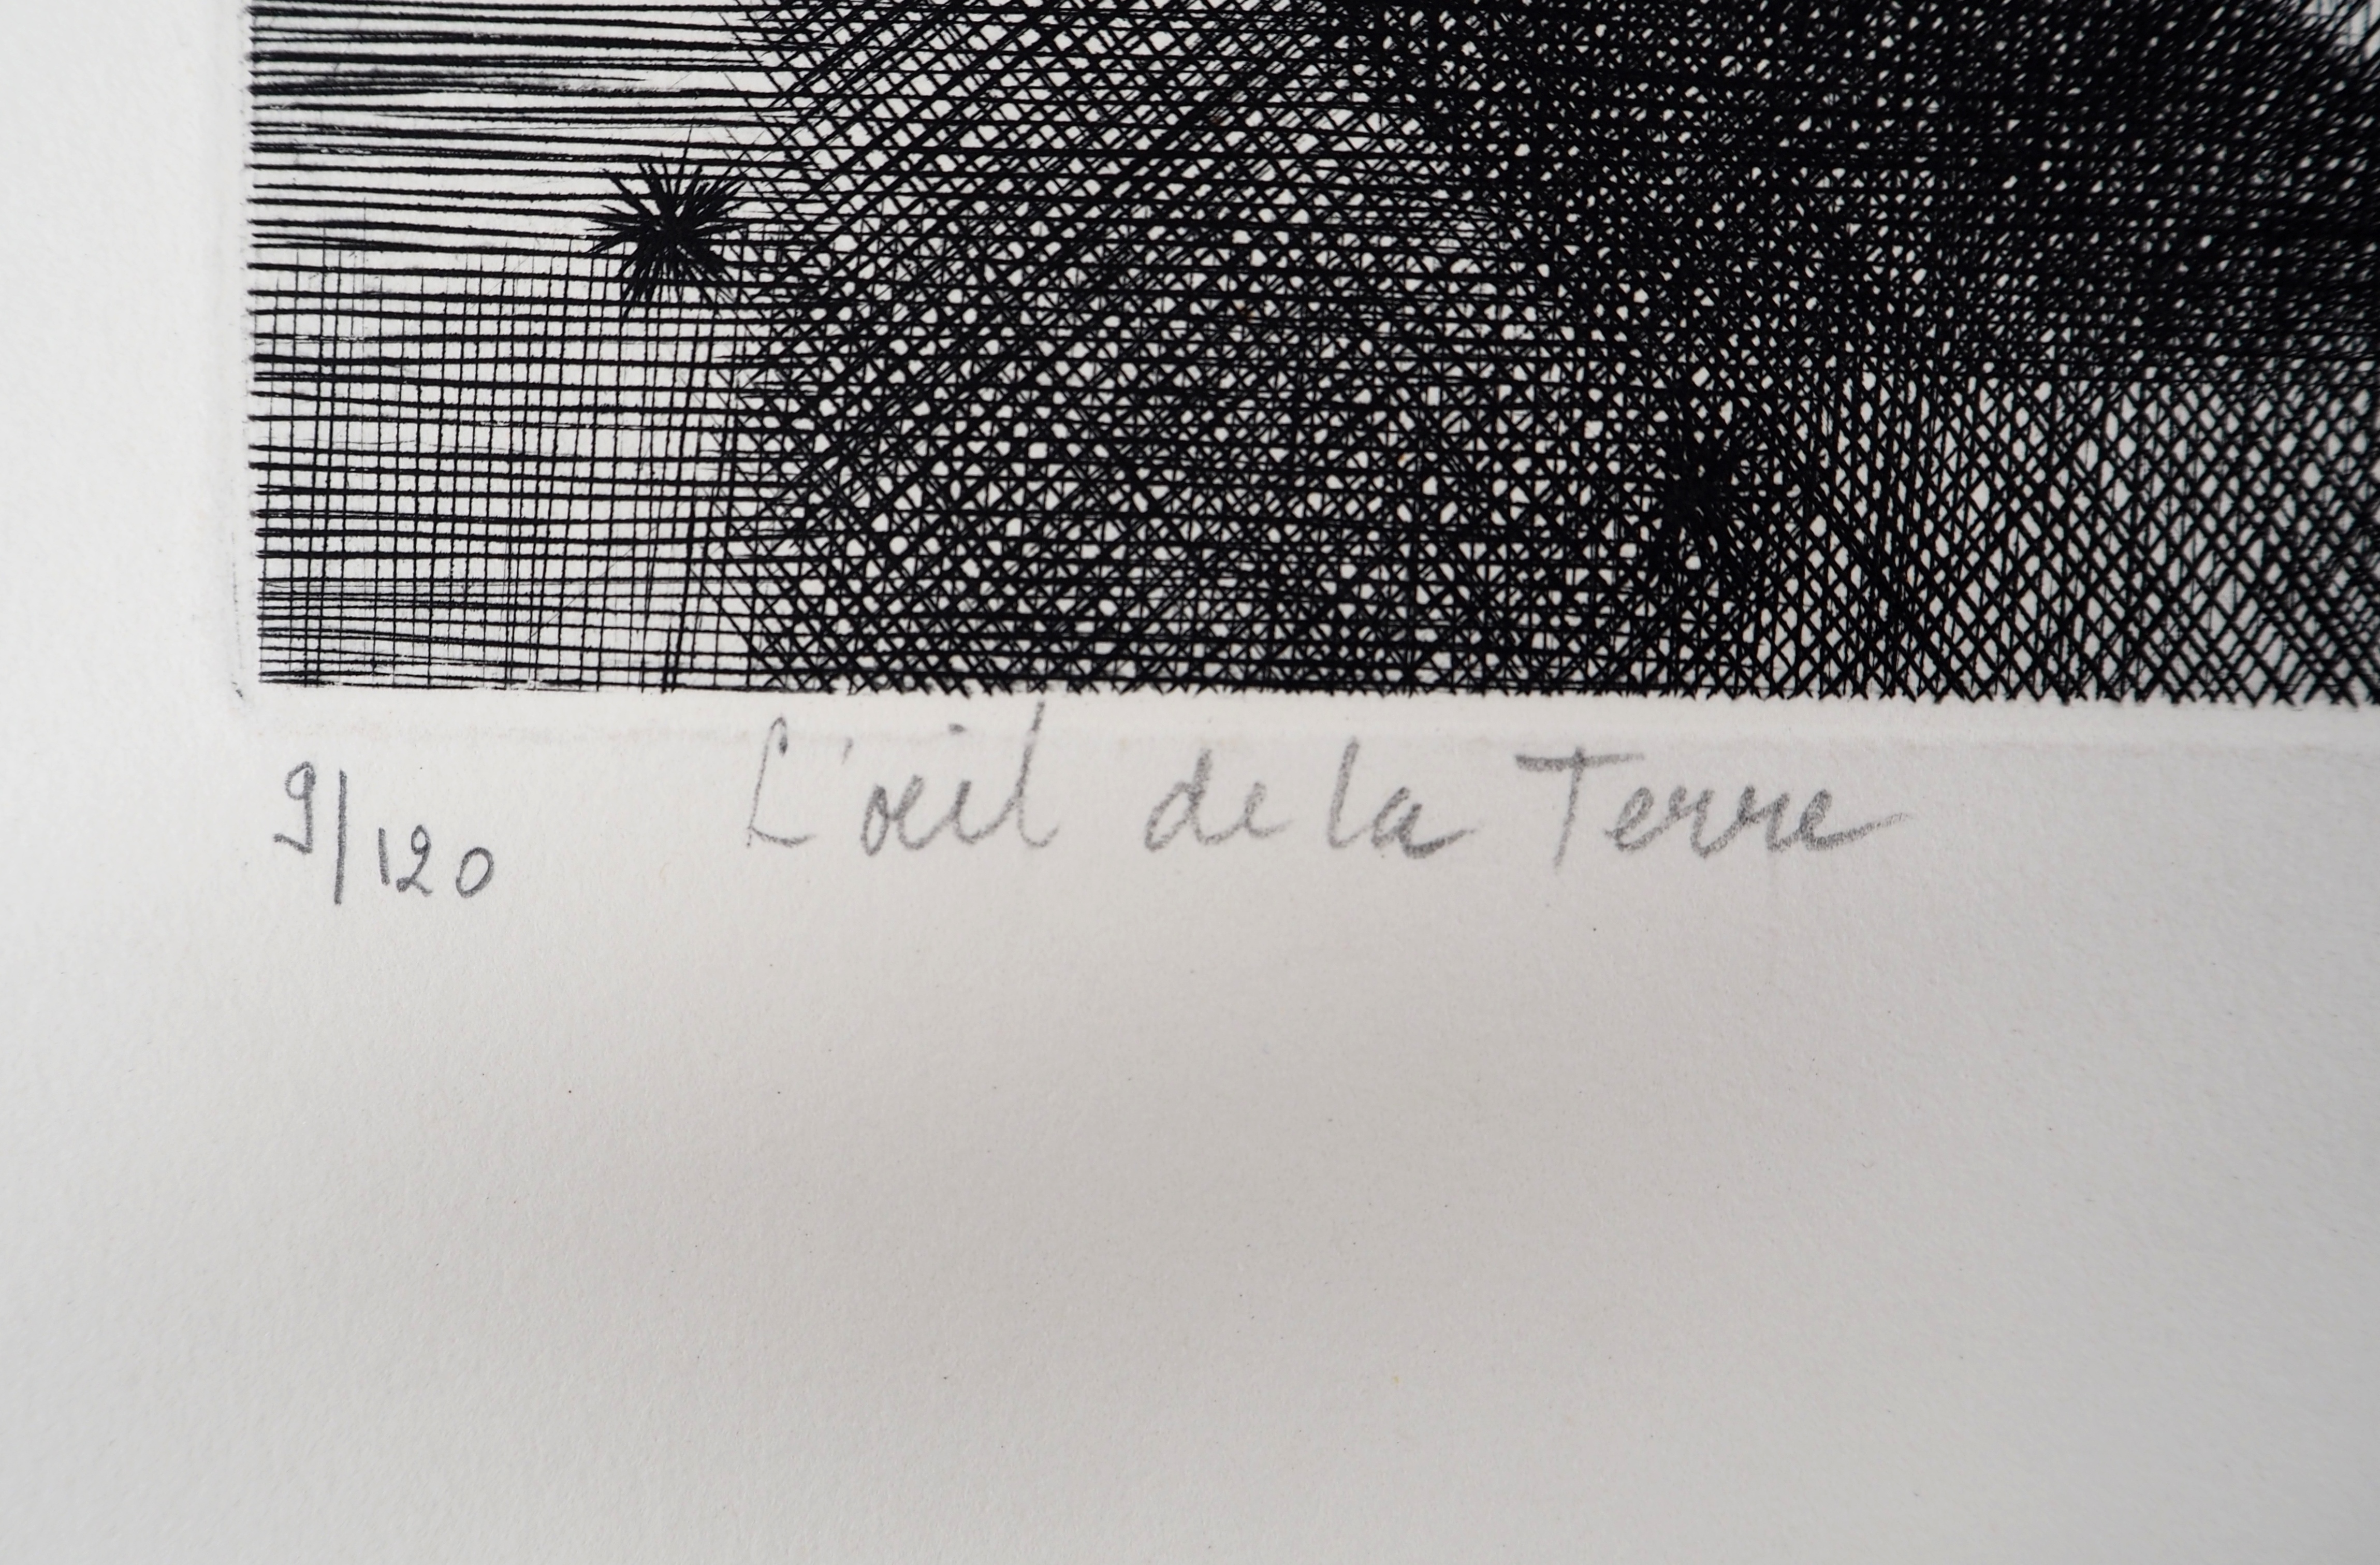 9/120 L'œil de la Terre